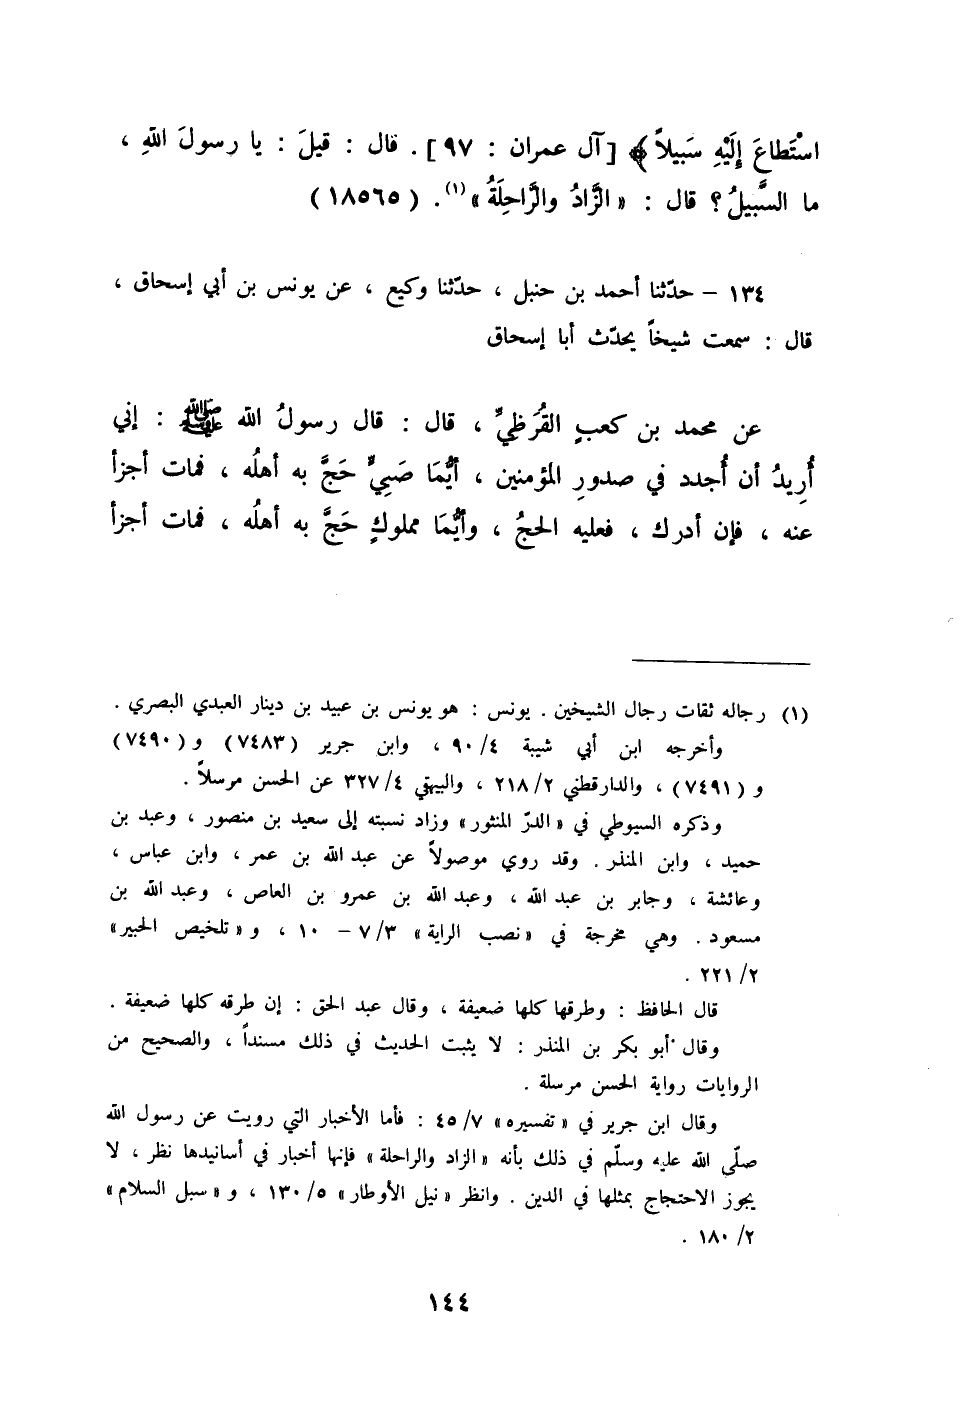 اسْتَطاعَ إِلَيْهِ سَبِيلاً﴾ [آل عمران : ٩٧] . قال : قيلَ : يا رسولَ اللهِ ،
ما السَّبيلُ؟ قال : «الزَّادُ والرَّاحِلَةُ»(١). (١٨٥٦٥)
١٣٤ – حدّثنا أحمد بن حنبل ، حدّثنا وكيع ، عن يونس بن أبي إسحاق ،
قال : سمعت شيخاً يحدّث أبا إسحاق
عن محمد بن كعبٍ القُرَظيِّ ، قال : قال رسولُ الله ﷺ : إني
أُرِيدُ أن أُجدد في صدورِ المؤمنين ، أيُّمَا صَبِيٍّ حَجَّ به أهلُه ، فمات أجزأ
عنه ، فإن أدرك ، فعليه الحجُ ، وأيُّمَا مملوكٍ حَجَّ به أهلُه ، فمات أجزأ
(١) رجاله ثقات رجال الشيخين . يونس : هو يونس بن عبيد بن دينار العبدي البصري .
وأخرجه ابن أبي شيبة ٩٠/٤ ، وابن جرير (٧٤٨٣) و (٧٤٩٠)
و (٧٤٩١) ، والدارقطني ٢١٨/٢ ، والبيهقي ٣٢٧/٤ عن الحسن مرسلاً .
وذكره السيوطي في «الدرّ المنثور» وزاد نسبته إلى سعيد بن منصور ، وعبد بن
حميد ، وابن المنذر . وقد روي موصولاً عن عبد الله بن عمر ، وابن عباس ،
وعائشة ، وجابر بن عبد الله ، وعبد الله بن عمرو بن العاص ، وعبد الله بن
مسعود . وهي مخرجة في «نصب الراية» ٧/٣ – ١٠ ، و «تلخيص الحبير»
٢٢١/٢ .
قال الحافظ : وطرقها كلها ضعيفة ، وقال عبد الحق : إن طرقه كلها ضعيفة .
وقال أبو بكر بن المنذر : لا يثبت الحديث في ذلك مسنداً ، والصحيح من
الروايات رواية الحسن مرسلة .
وقال ابن جرير في «تفسيره» ٤٥/٧ : فأما الأخبار التي رويت عن رسول الله
صلّى الله عليه وسلّم في ذلك بأنه «الزاد والراحلة» فإنها أخبار في أسانيدها نظر ، لا
يجوز الاحتجاج بمثلها في الدين . وانظر «نيل الأوطار» ١٣٠/٥ ، و «سبل السلام»
١٨٠/٢ .
١٤٤